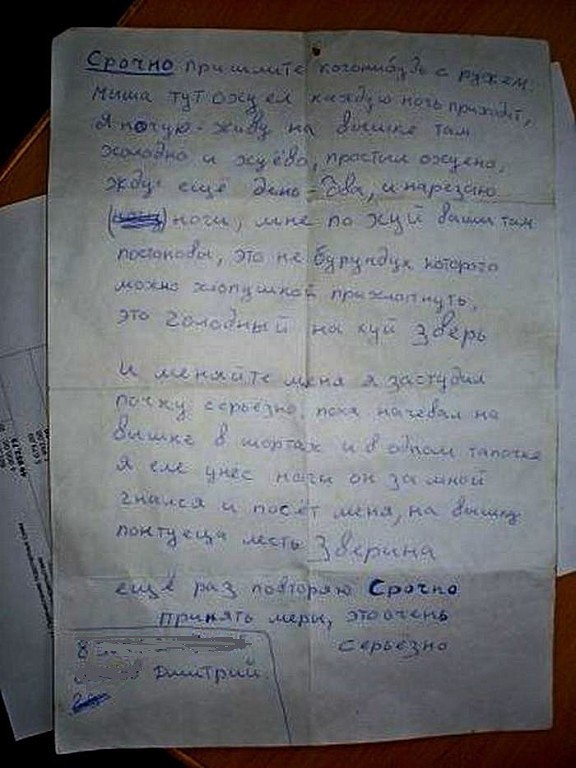 Срочно пришлите когонибудь с ружем
Миша тут охуел каждую ночь приходит,
Я ночую-живу на вышке там
холодно и хуёво, простыл охуено,
жду ещё день-два, и нарезаю
ноги, мне по хуй ваши там
постановы, это не бурундук которого
можно хлопушкой прихлопнуть,
это голодный на хуй Зверь
и меняйте меня я застудил
почку серьёзно, пока начевал на
вышке в шортах и в одном тапочке
Я еле унёс ноги он за мной
гнался и посёт меня, на вышку
понтуеца лесть Зверина
ещё раз повторяю Срочно
принять меры, это очень
серьёзно
8
Дмитрий